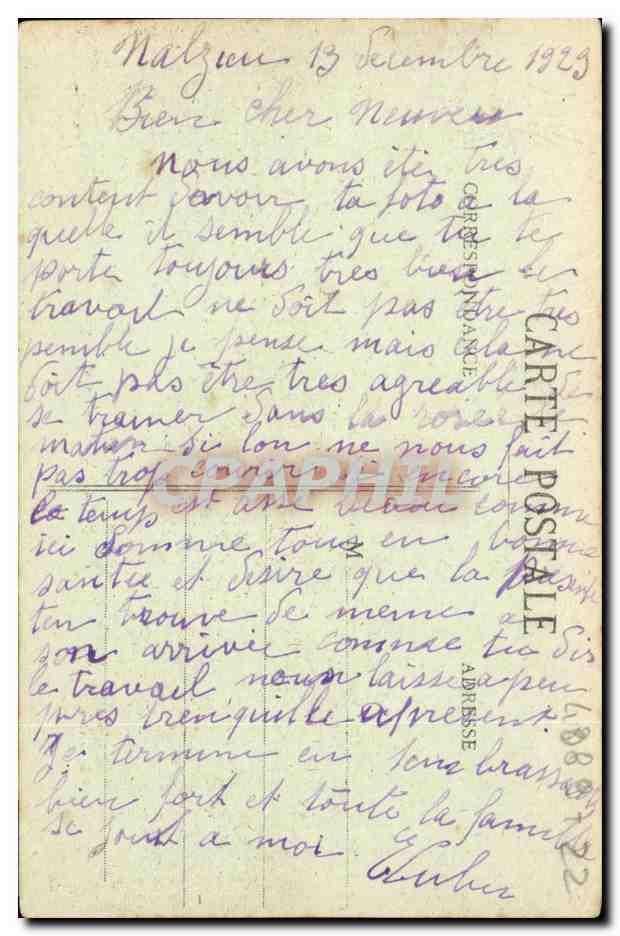 Malzieu 13 decembre 1929
Bien cher Neuveu
Nous avons étei tres
content davoir ta foto a la
quelle il semble que tu te
porte toujours tres bien le
travail ne doit pas être tres
penible je pense mais cela ne
doit pas être tres agreable de
se trainer dans la rosee le
matin si lon ne nous fait
pas trop courir si encore
le temp est asse beau comme
ici somme tous en bonne
santee et desire que la presente
ten trouve de meme a
son arrivée comme tu dis
le travail nous laisse a peu
pres trenquille apresent.
Je termine en tenbrassant
bien fort et toute la famille
se joint a moi
CARTE POSTALE
CORRESPONDANCE
ADRESSE
M
CPAPHIL